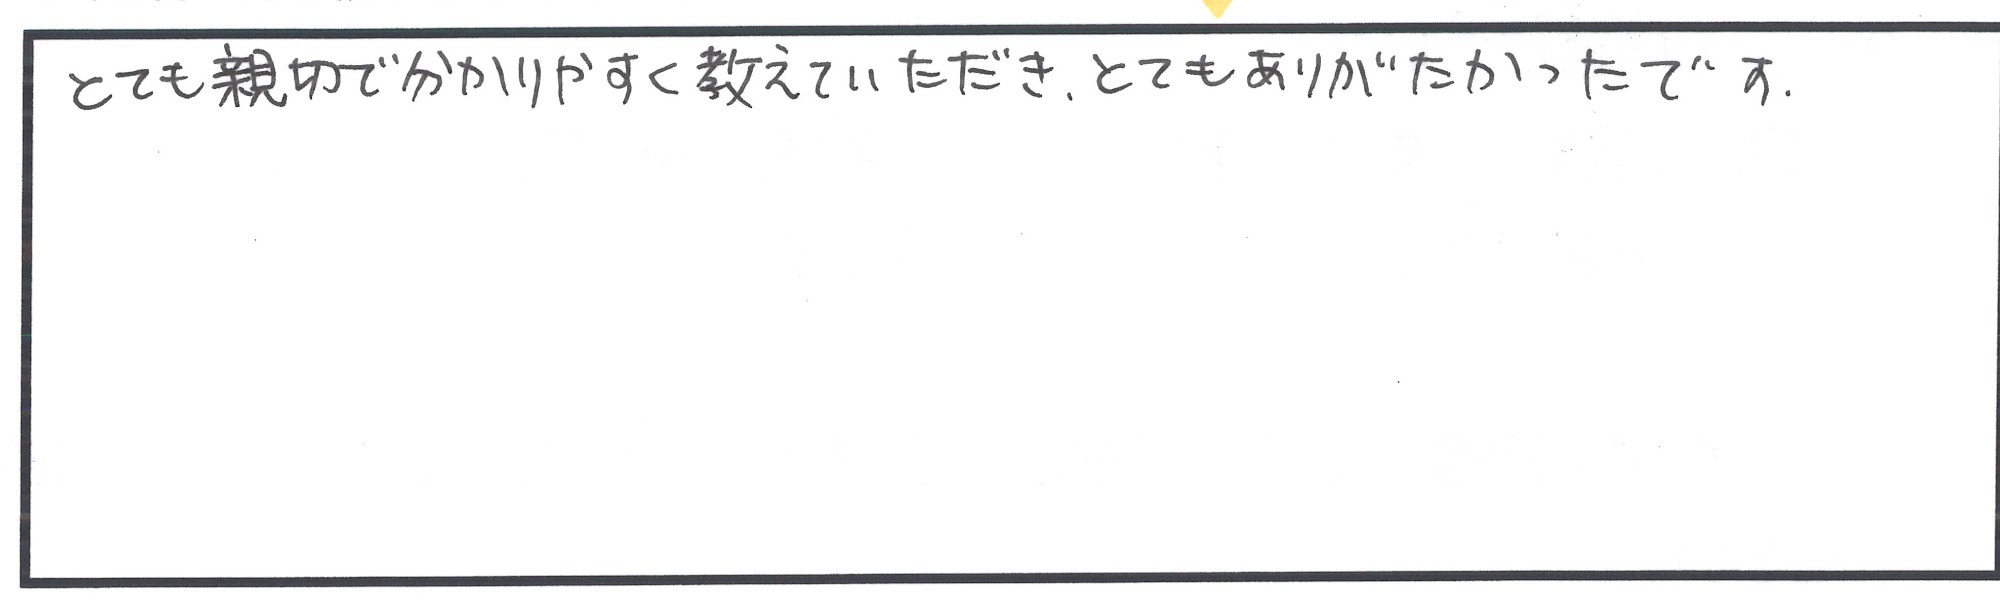 とても親切で分かりやすく教えていただき、とてもありがたかったです.